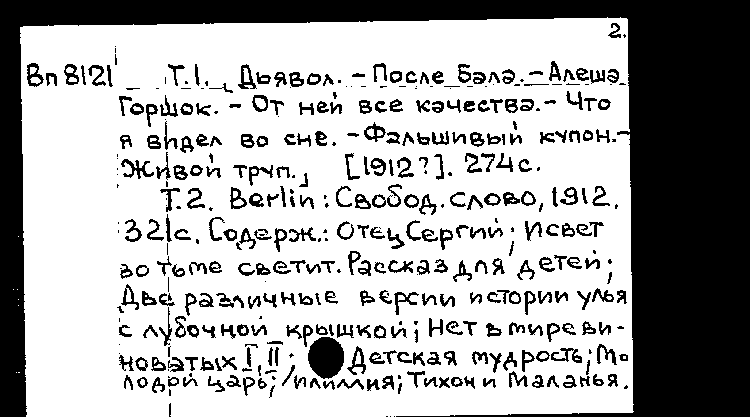 2.
Вп 8121 Т.1. Дьявол. - После бала. - Алеша
Горшок. - От ней все качества. - Что
я видел во сне. - Фальшивый купон. -
Живой труп. [1912?]. 274 с.
Т.2. Berlin: Свобод. слово, 1912.
321 с. Содерж.: Отец Сергий; И свет
во тьме светит. Рассказ для детей;
Две различные версии истории улья
с лубочной крышкой; Нет в мире ви-
новатых I, II; Детская мудрость; Мо
лодой царь; Тихон и Маланья.